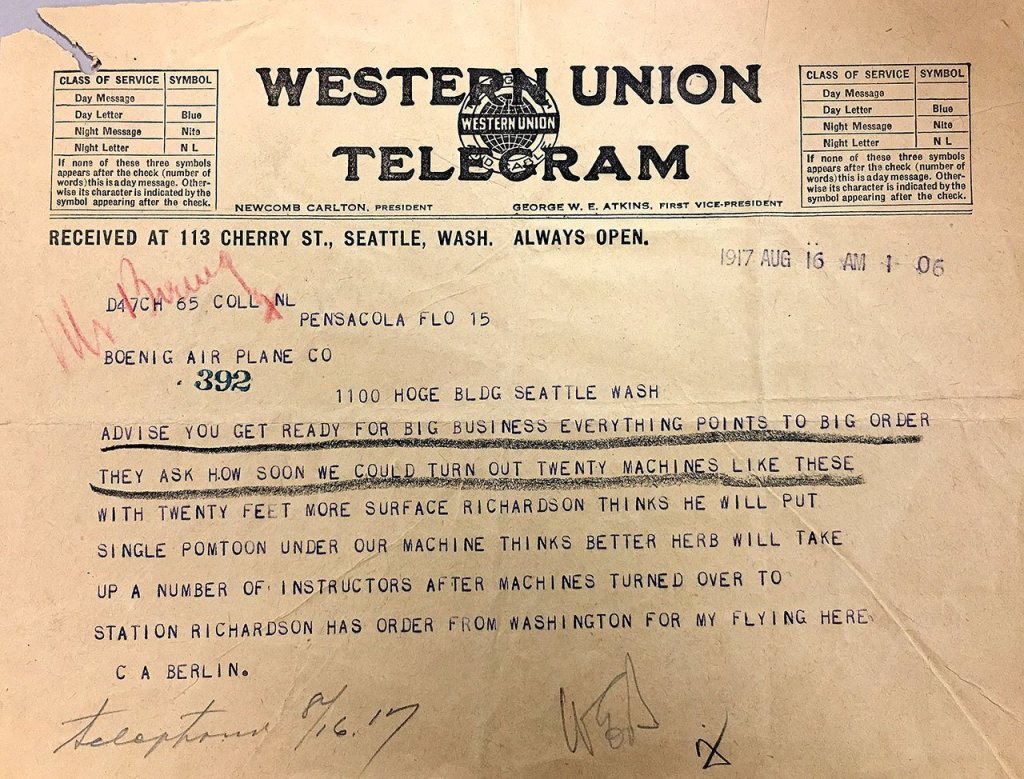 WESTERN UNION
WESTERN UNION
TELEGRAM
CLASS OF SERVICE SYMBOL
Day Message
Day Letter Blue
Night Message Nite
Night Letter N L
If none of these three symbols
appears after the check (number of
words) this is a day message. Other-
wise its character is indicated by the
symbol appearing after the check.
CLASS OF SERVICE SYMBOL
Day Message
Day Letter Blue
Night Message Nite
Night Letter N L
If none of these three symbols
appears after the check (number of
words) this is a day message. Other-
wise its character is indicated by the
symbol appearing after the check.
NEWCOMB CARLTON, PRESIDENT GEORGE W. E. ATKINS, FIRST VICE-PRESIDENT
RECEIVED AT 113 CHERRY ST., SEATTLE, WASH. ALWAYS OPEN.
1917 AUG 16 AM 1 06
Mr Boeing
D47CH 65 COLL NL
PENSACOLA FLO 15
BOENIG AIR PLANE CO
392
1100 HOGE BLDG SEATTLE WASH
ADVISE YOU GET READY FOR BIG BUSINESS EVERYTHING POINTS TO BIG ORDER
THEY ASK HOW SOON WE COULD TURN OUT TWENTY MACHINES LIKE THESE
WITH TWENTY FEET MORE SURFACE RICHARDSON THINKS HE WILL PUT
SINGLE POMTOON UNDER OUR MACHINE THINKS BETTER HERB WILL TAKE
UP A NUMBER OF INSTRUCTORS AFTER MACHINES TURNED OVER TO
STATION RICHARDSON HAS ORDER FROM WASHINGTON FOR MY FLYING HERE
C A BERLIN.
telephoned 8/16.17
WEB